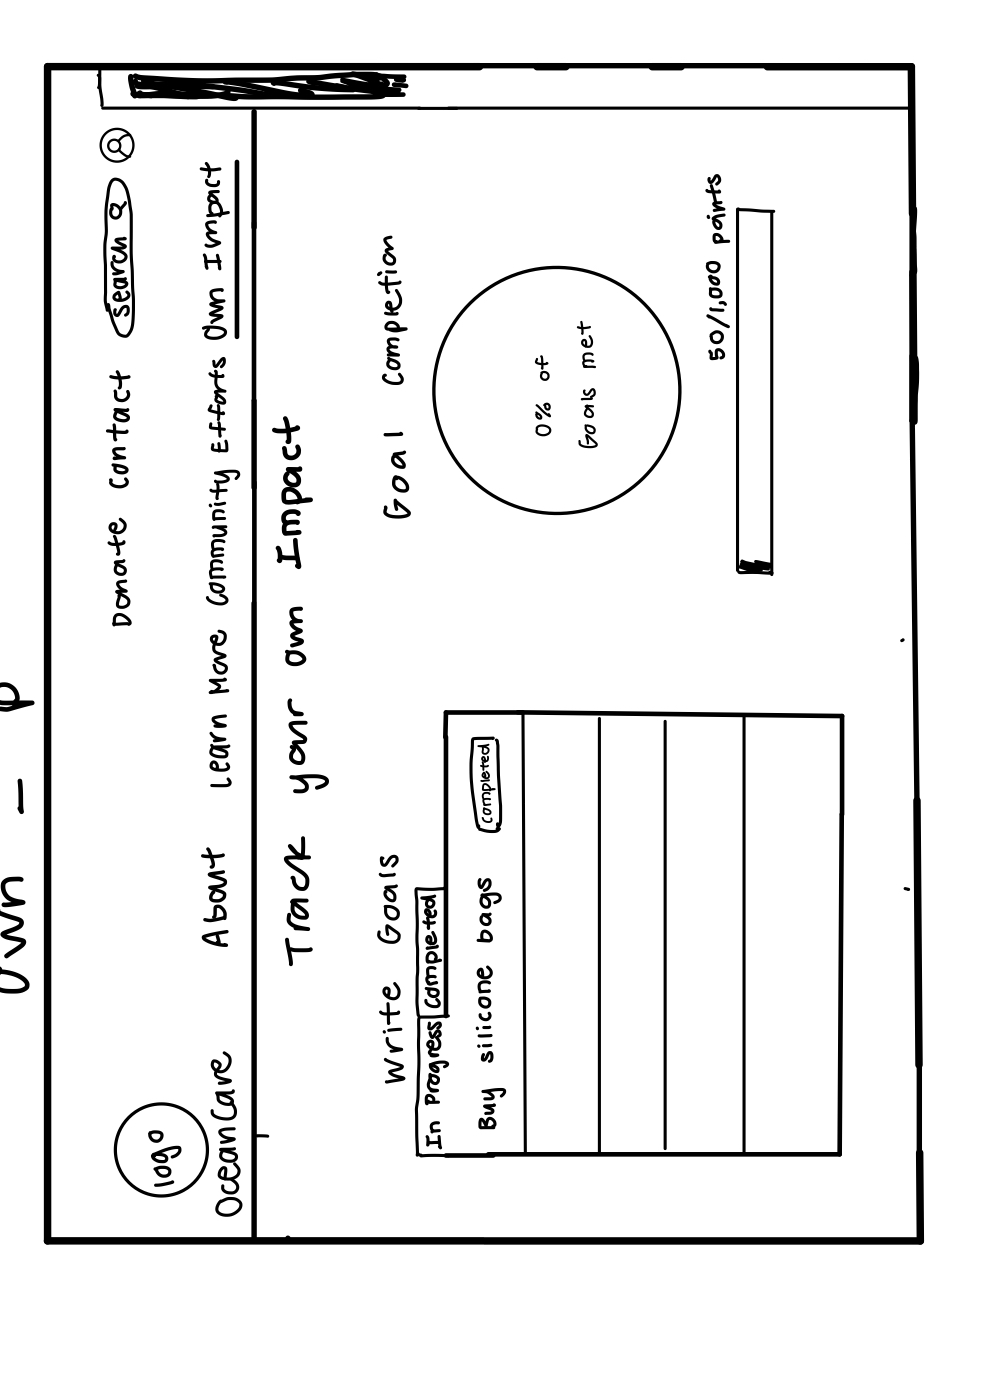 Own - p
Donate Contact search
logo
OceanCare
About Learn More Community Efforts Own Impact
Track your own Impact
Write Goals
In Progress Completed
Buy silicone bags completed
Goal Completion
0% of
Goals met
50/1,000 points